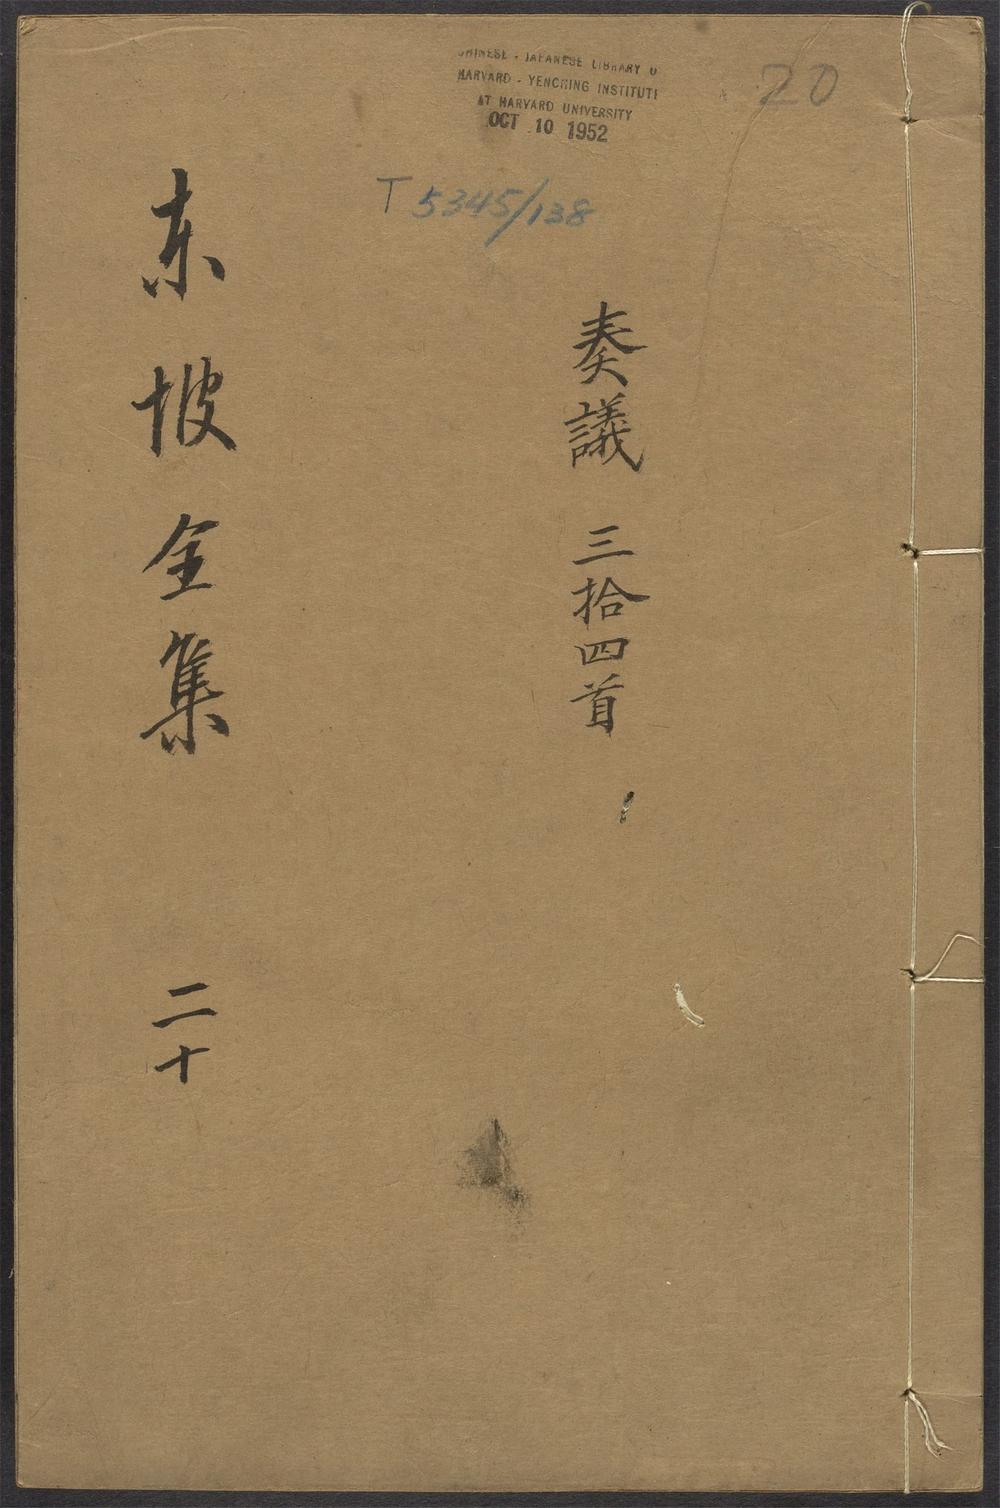 CHINESE - JAPANESE LIBRARY O
HARVARD - YENCHING INSTITUTE
AT HARVARD UNIVERSITY
OCT 10 1952
20
T 5345/138
奏議 三拾四首
东坡全集 二十